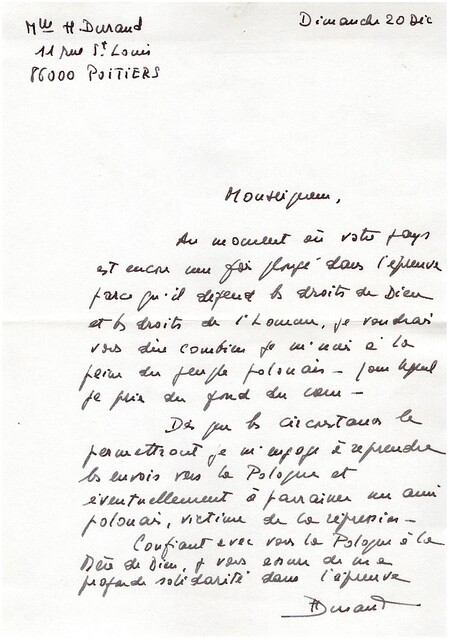 Mlle H. Durand
11 rue St Louis
86000 POITIERS
Dimanche 20 Déc
Monseigneur,
Au moment où votre pays
est encore une fois plongé dans l'épreuve
parce qu'il défend les droits de Dieu
et les droits de l'homme, je voudrais
vous dire combien je m'unis à la
peine du peuple polonais — pour lequel
je prie du fond du cœur —
Dès que les circonstances le
permettront je m'engage à reprendre
les envois vers la Pologne et
éventuellement à parrainer un ami
polonais, victime de la répression —
Confiant avec vous la Pologne à la
Mère de Dieu, je vous assure de ma
profonde solidarité dans l'épreuve
H Durand